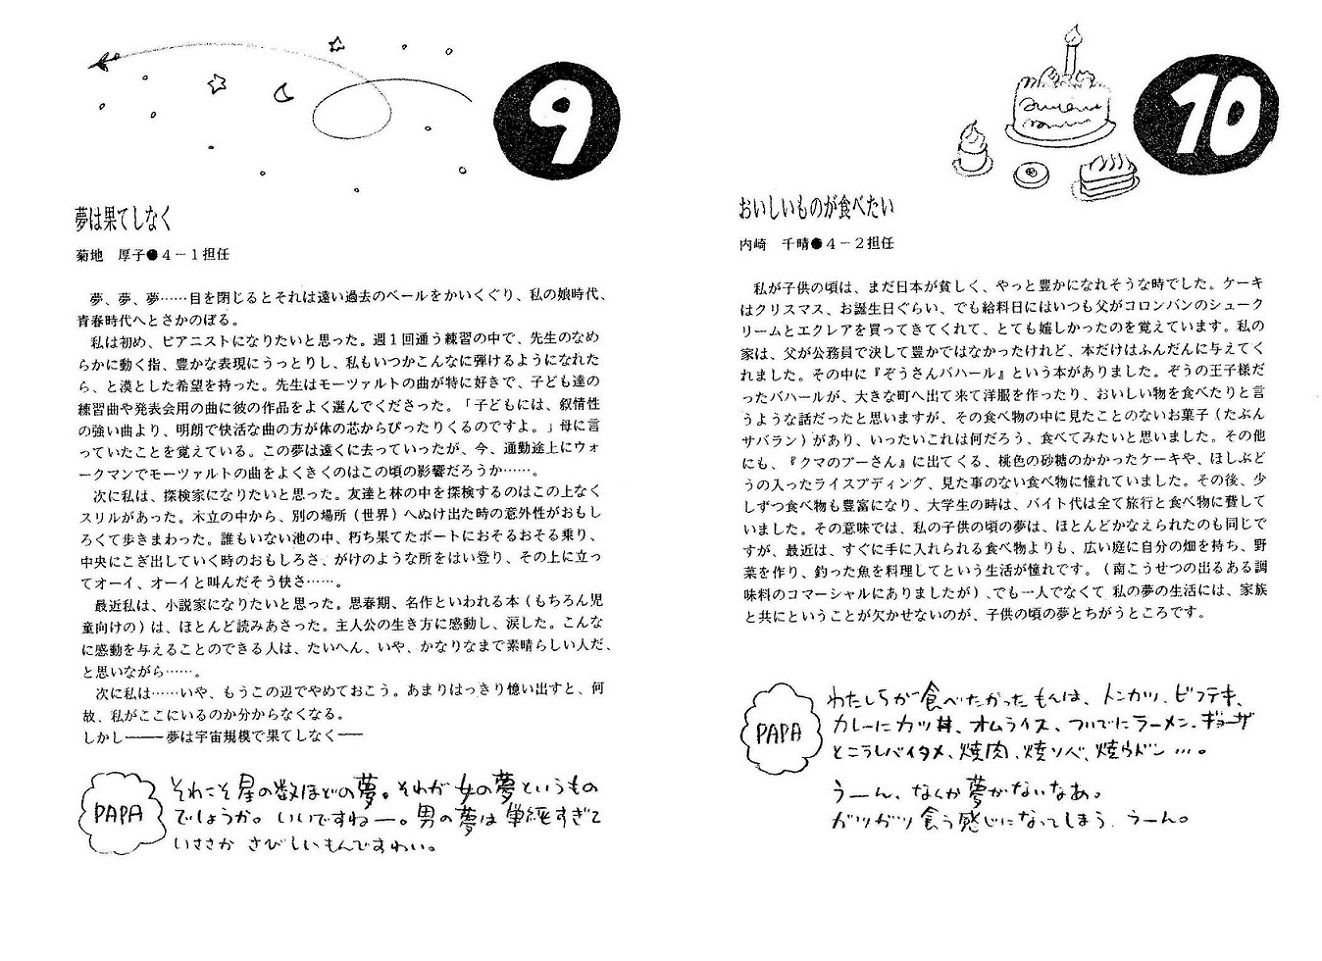 9
夢は果てしなく
菊地　厚子●４－１担任
夢、夢、夢……目を閉じるとそれは遠い過去のベールをかいくぐり、私の娘時代、
青春時代へとさかのぼる。
私は初め、ピアニストになりたいと思った。週１回通う練習の中で、先生のなめ
らかに動く指、豊かな表現にうっとりし、私もいつかこんなに弾けるようになれた
ら、と漠とした希望を持った。先生はモーツァルトの曲が特に好きで、子ども達の
練習曲や発表会用の曲に彼の作品をよく選んでくださった。「子どもには、叙情性
の強い曲より、明朗で快活な曲の方が体の芯からぴったりくるのですよ。」母に言
っていたことを覚えている。この夢は遠くに去っていったが、今、通勤途上にウォ
ークマンでモーツァルトの曲をよくきくのはこの頃の影響だろうか……。
次に私は、探検家になりたいと思った。友達と林の中を探検するのはこの上なく
スリルがあった。木立の中から、別の場所（世界）へぬけ出た時の意外性がおもし
ろくて歩きまわった。誰もいない池の中、朽ち果てたボートにおそるおそる乗り、
中央にこぎ出していく時のおもしろさ、がけのような所をはい登り、その上に立っ
てオーイ、オーイと叫んだそう快さ……。
最近私は、小説家になりたいと思った。思春期、名作といわれる本（もちろん児
童向けの）は、ほとんど読みあさった。主人公の生き方に感動し、涙した。こんな
に感動を与えることのできる人は、たいへん、いや、かなりなまで素晴らしい人だ、
と思いながら……。
次に私は……いや、もうこの辺でやめておこう。あまりはっきり憶い出すと、何
故、私がここにいるのか分からなくなる。
しかし―――夢は宇宙規模で果てしなく――
PAPA
それこそ星の数ほどの夢。それが女の夢というもの
でしょうか。いいですねー。男の夢は単純すぎて
いささか さびしいもんですわい。
10
おいしいものが食べたい
内崎　千晴●４－２担任
私が子供の頃は、まだ日本が貧しく、やっと豊かになれそうな時でした。ケーキ
はクリスマス、お誕生日ぐらい、でも給料日にはいつも父がコロンバンのシューク
リームとエクレアを買ってきてくれて、とても嬉しかったのを覚えています。私の
家は、父が公務員で決して豊かではなかったけれど、本だけはふんだんに与えてく
れました。その中に『ぞうさんバハール』という本がありました。ぞうの王子様だ
ったバハールが、大きな町へ出て来て洋服を作ったり、おいしい物を食べたりと言
うような話だったと思いますが、その食べ物の中に見たことのないお菓子（たぶん
サバラン）があり、いったいこれは何だろう、食べてみたいと思いました。その他
にも、『クマのプーさん』に出てくる、桃色の砂糖のかかったケーキや、ほしぶど
うの入ったライスプディング、見た事のない食べ物に憧れていました。その後、少
しずつ食べ物も豊富になり、大学生の時は、バイト代は全て旅行と食べ物に費して
いました。その意味では、私の子供の頃の夢は、ほとんどかなえられたのも同じで
すが、最近は、すぐに手に入れられる食べ物よりも、広い庭に自分の畑を持ち、野
菜を作り、釣った魚を料理してという生活が憧れです。（南こうせつの出るある調
味料のコマーシャルにありましたが）、でも一人でなくて 私の夢の生活には、家族
と共にということが欠かせないのが、子供の頃の夢とちがうところです。
PAPA
わたしらが食べたかったもんは、トンカツ、ビフテキ、
カレーにカツ丼、オムライス、ついでにラーメン、ギョーザ
とこうしバイタメ、焼肉、焼ソバ、焼ウドン…。
うーん、なんか夢がないなあ。
ガツガツ食う感じになってしまう、うーん。